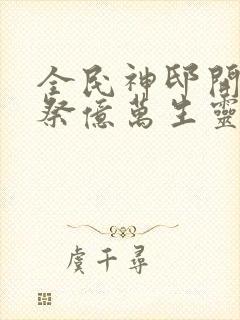 全民神邸開
祭億萬生靈
虞千尋